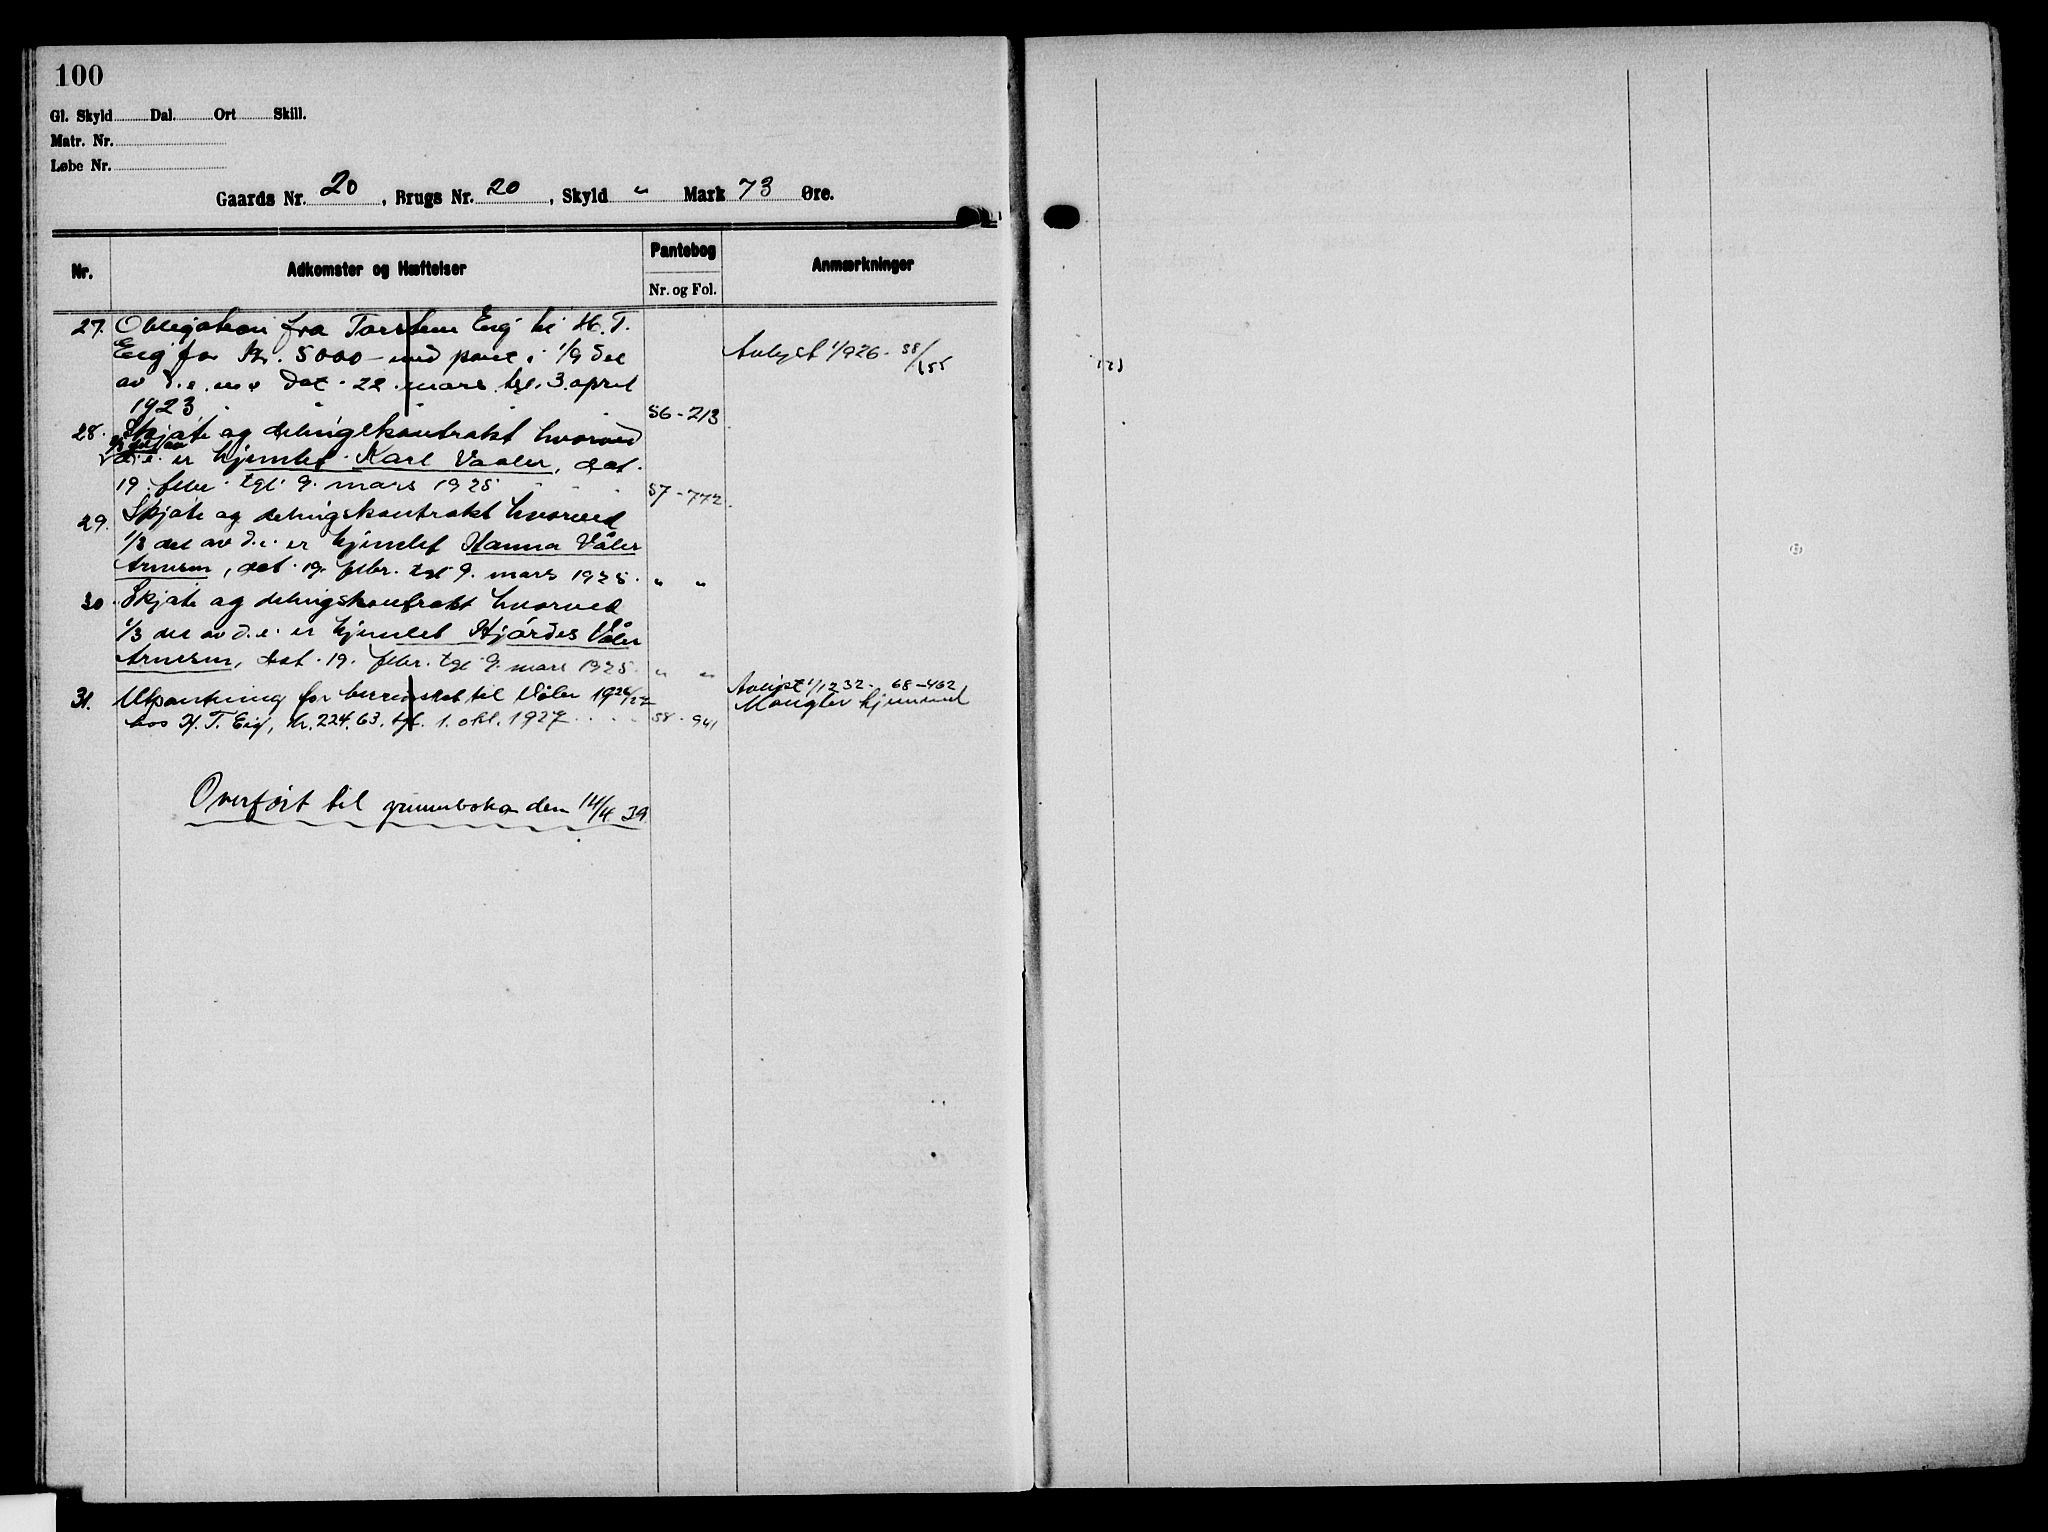 100
Gl. Skyld Dal. Ort Skill.
Matr. Nr.
Løbe Nr.
Gaards Nr. 20, Brugs Nr. 20, Skyld " Mark 73 Øre.
Nr. Adkomster og Hæftelser Pantebog Anmærkninger
Nr. og Fol.
27. Obligation fra Torstein Eig til H. T.
Eig for Kr. 5000 - med pant i 1/9 del Avlyst 1/926 - 58/155
av d. e. m. v. Dat. 22. mars tgl. 3. april
1923 56 - 213
28. Skjøte og delingskontrakt hvorved
1/3 del av
d. e. er hjemlet Karl Vaaler, dat.
19. febr. tgl. 9. mars 1925 57 - 772
29. Skjøte og delingskontrakt hvorved
1/3 del av d. e. er hjemlet Hanna Våler
Arnesen, dat. 19. febr. tgl. 9. mars 1925. " "
30. Skjøte og delingskontrakt hvorved
1/3 del av d. e. er hjemlet Hjørdes Våler
Arnesen, dat. 19. febr. tgl. 9. mars 1925. " "
31. Utpantning for til Våler 1926/27 Avlyst 1/12 32 - 68 - 462
hos H. T. Eig, kr. 224.63. tgl. 1. okt. 1927 58 - 941 Mangler hjemmel
Overført til grunnboka den 14/4 39.